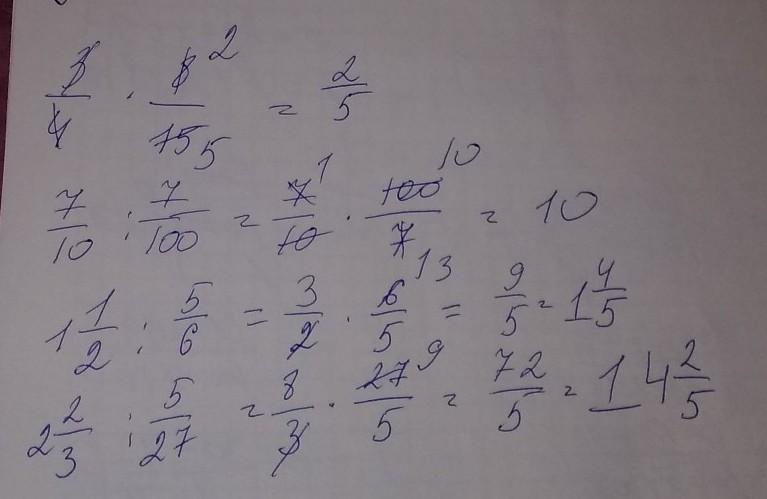 3/4 · 8 2/15 5 = 2/5
7/10 : 7/100 = 7 1/10 · 100 10/7 = 10
1 1/2 : 5/6 = 3/2 · 6 13/5 = 9/5 = 1 4/5
2 2/3 : 5/27 = 8/3 · 27 9/5 = 72/5 = 14 2/5